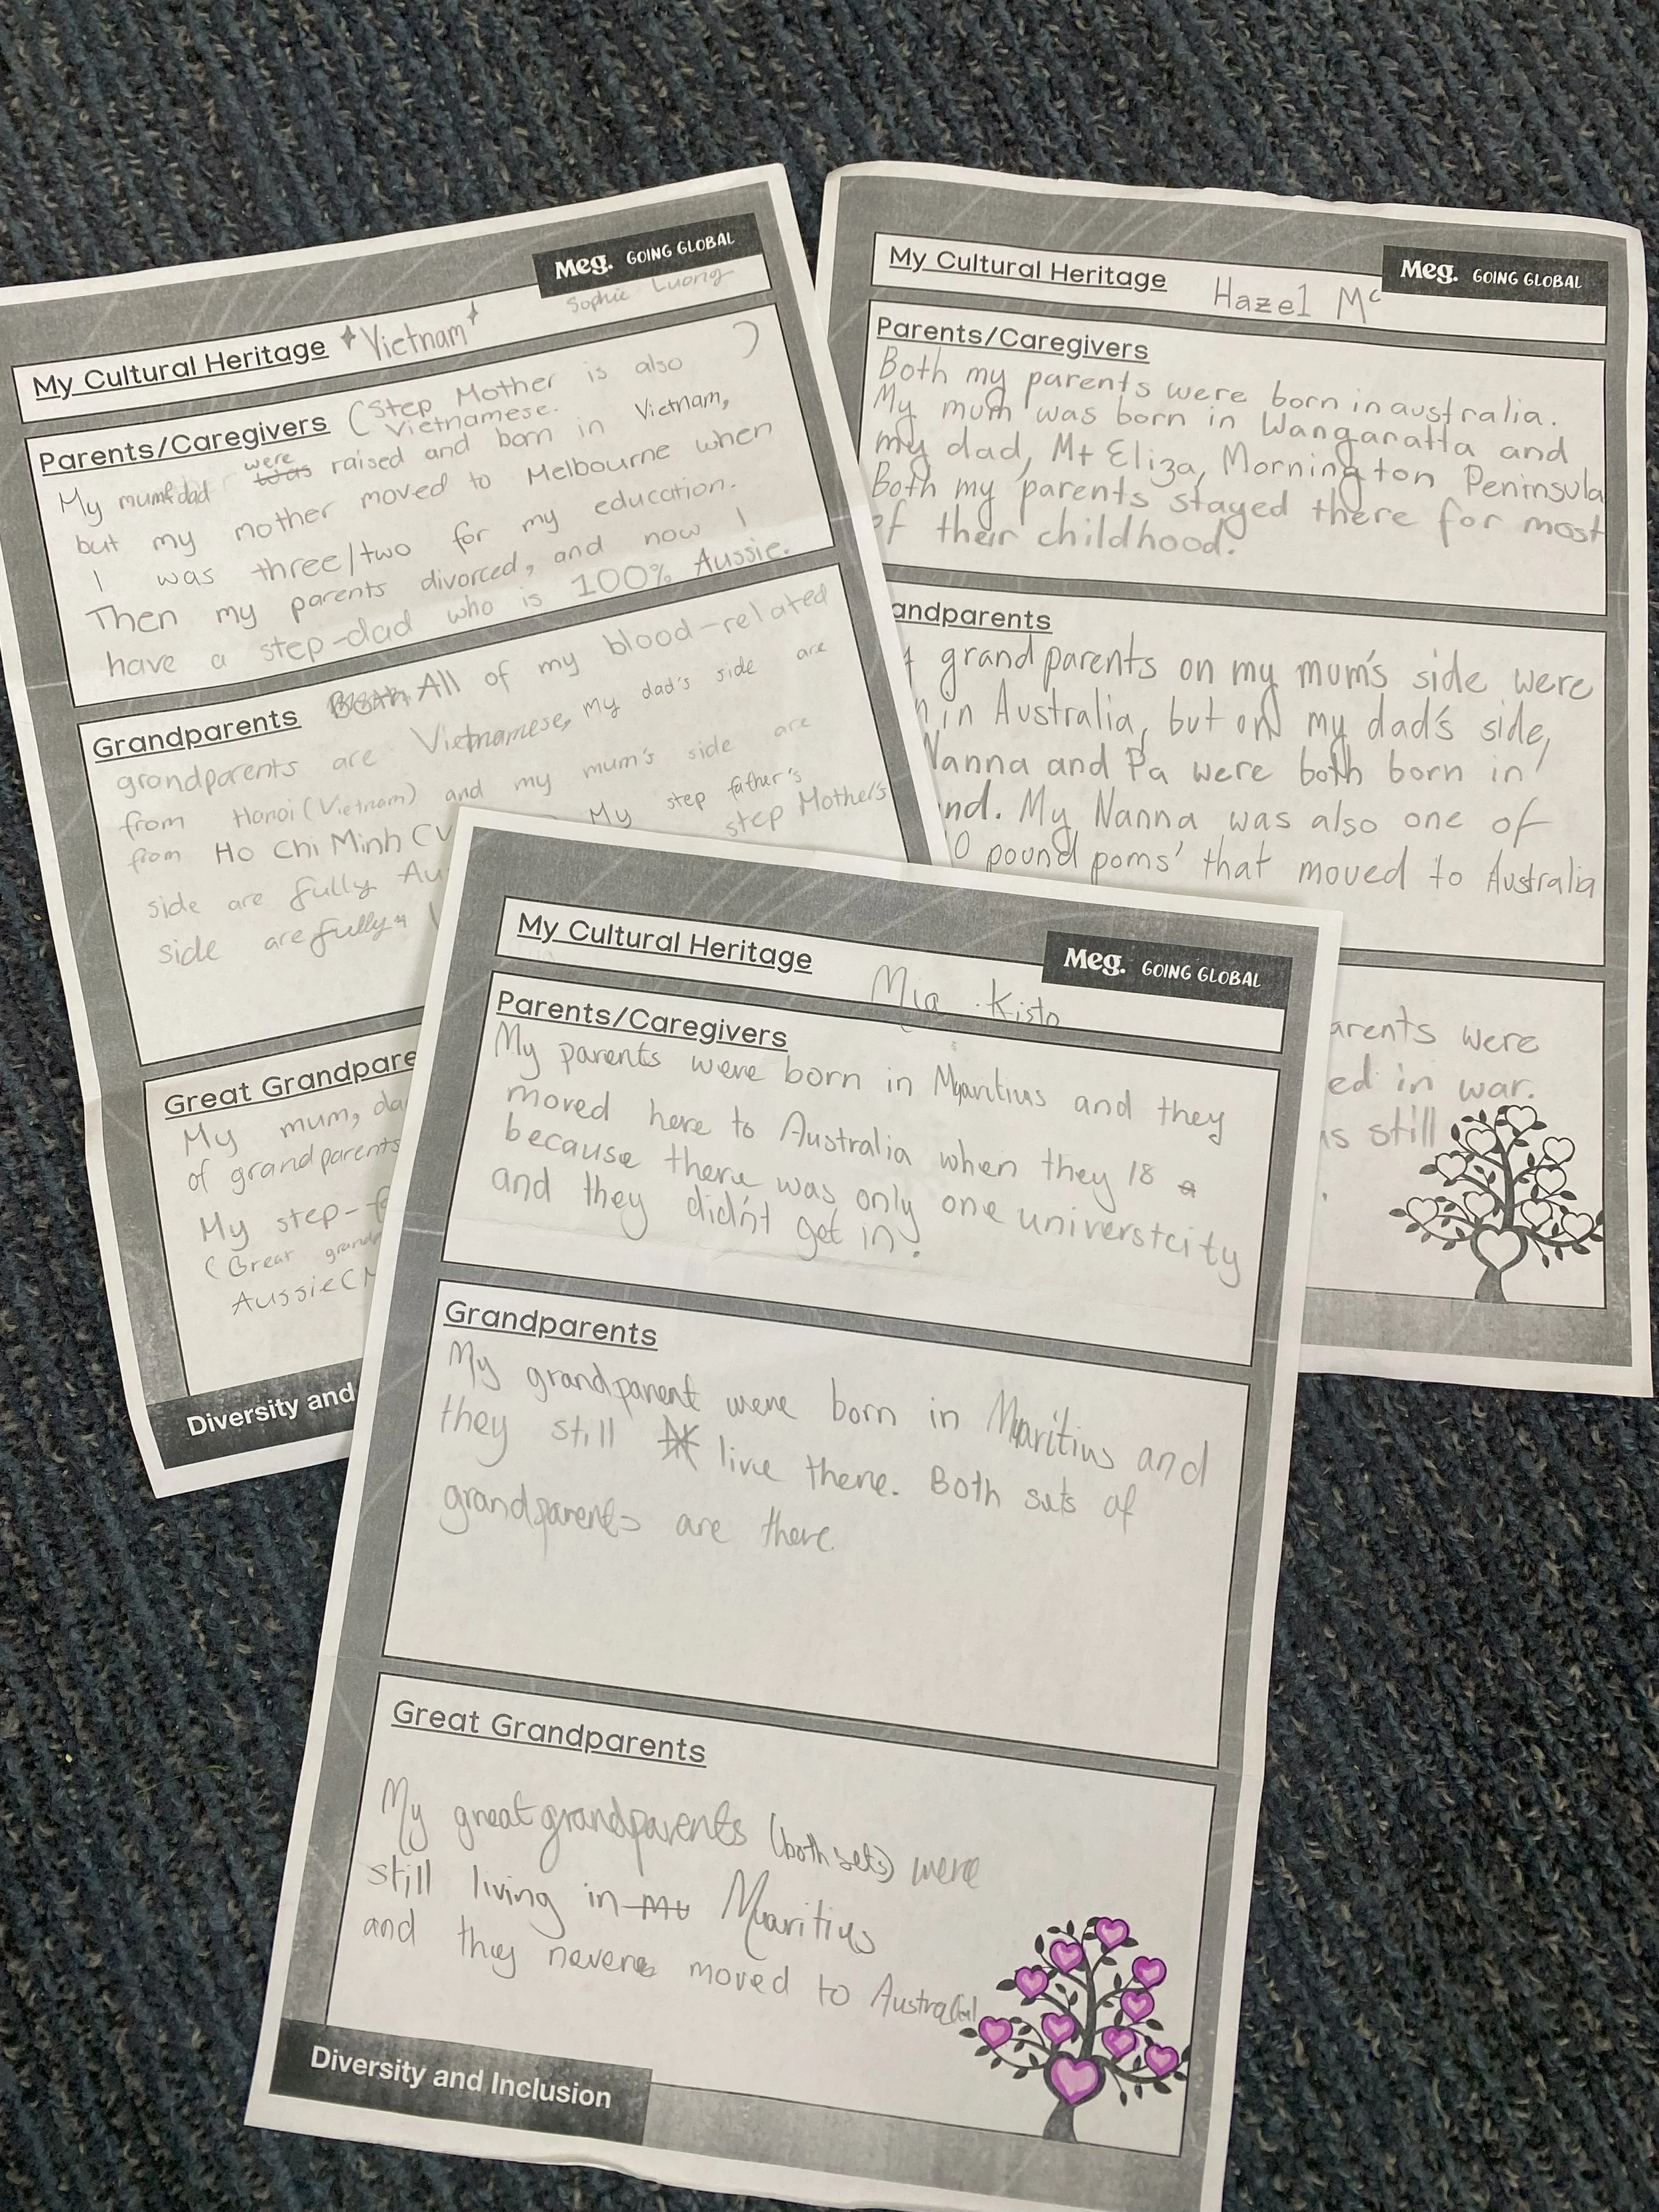 My Cultural Heritage Vietnam
Meg. GOING GLOBAL
Sophie Luong
Parents/Caregivers (Step Mother is also )
Vietnamese.
My mum&dad were was raised and born in Vietnam,
but my mother moved to Melbourne when
I was three/two for my education.
Then my parents divorced, and now I
have a step-dad who is 100% Aussie.
Grandparents Both All of my blood-related
grandparents are Vietnamese, my dad's side are
from Hanoi (Vietnam) and my mum's side are
from Ho Chi Minh (V My step father's
side are fully Au step Mother's
side are fully
Great Grandpare
My mum, da
of grandparents
My step-f
(Great grandp
Aussie (M
Diversity and
My Cultural Heritage Hazel Mc
Meg. GOING GLOBAL
Parents/Caregivers
Both my parents were born in australia.
My mum was born in Wangaratta and
my dad, Mt Eliza, Mornington Peninsula
Both my parents stayed there for most
of their childhood.
andparents
grandparents on my mum's side were
n in Australia, but on my dad's side,
Nanna and Pa were both born in
nd. My Nanna was also one of
0 pound poms' that moved to Australia
arents were
ed in war.
as still
My Cultural Heritage Mia Kisto
Meg. GOING GLOBAL
Parents/Caregivers
My parents were born in Mauritius and they
moved here to Australia when they 18 a
because there was only one universtcity
and they didn't get in.
Grandparents
My grandparent were born in Mauritius and
they still live there. Both sets of
grandparents are there
Great Grandparents
My great grandparents (both sets) were
still living in Mu Muaritius
and they never moved to Australia
Diversity and Inclusion